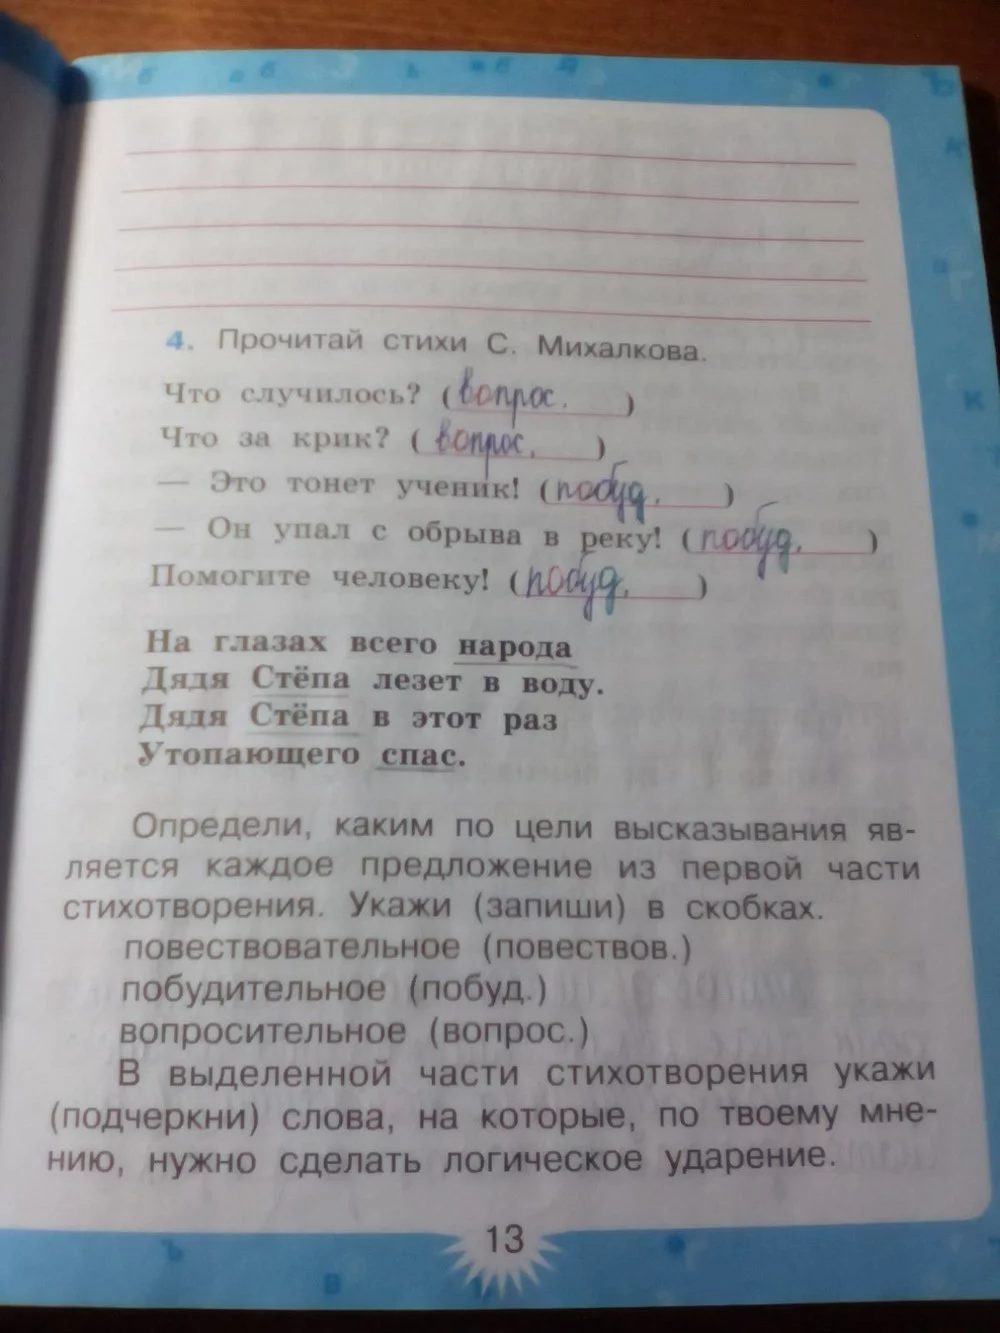 4. Прочитай стихи С. Михалкова.
Что случилось? (вопрос.)
Что за крик? (вопрос.)
— Это тонет ученик! (побуд.)
— Он упал с обрыва в реку! (побуд.)
Помогите человеку! (побуд.)
На глазах всего народа
Дядя Стёпа лезет в воду.
Дядя Стёпа в этот раз
Утопающего спас.
Определи, каким по цели высказывания яв-
ляется каждое предложение из первой части
стихотворения. Укажи (запиши) в скобках.
повествовательное (повествов.)
побудительное (побуд.)
вопросительное (вопрос.)
В выделенной части стихотворения укажи
(подчеркни) слова, на которые, по твоему мне-
нию, нужно сделать логическое ударение.
13